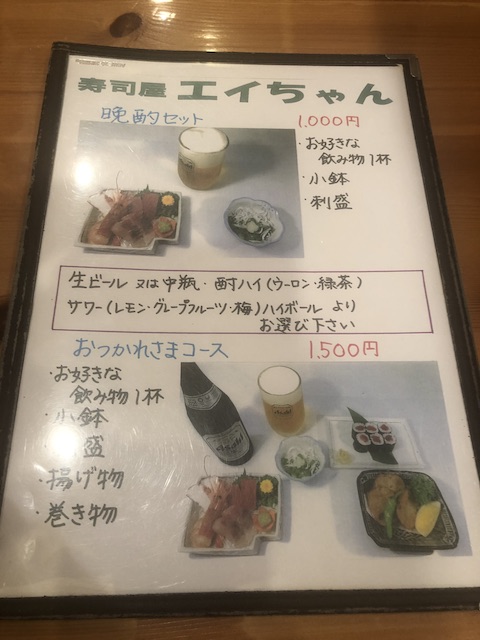 寿司屋 エイちゃん
晩酌セット 1,000円
・お好きな
飲み物1杯
・小鉢
・刺盛
生ビール 又は中瓶・酎ハイ(ウーロン・緑茶)
サワー(レモン・グレープフルーツ・梅)ハイボール より
お選び下さい
おつかれさまコース 1,500円
・お好きな
飲み物1杯
・小鉢
盛
・揚げ物
・巻き物
Asahi